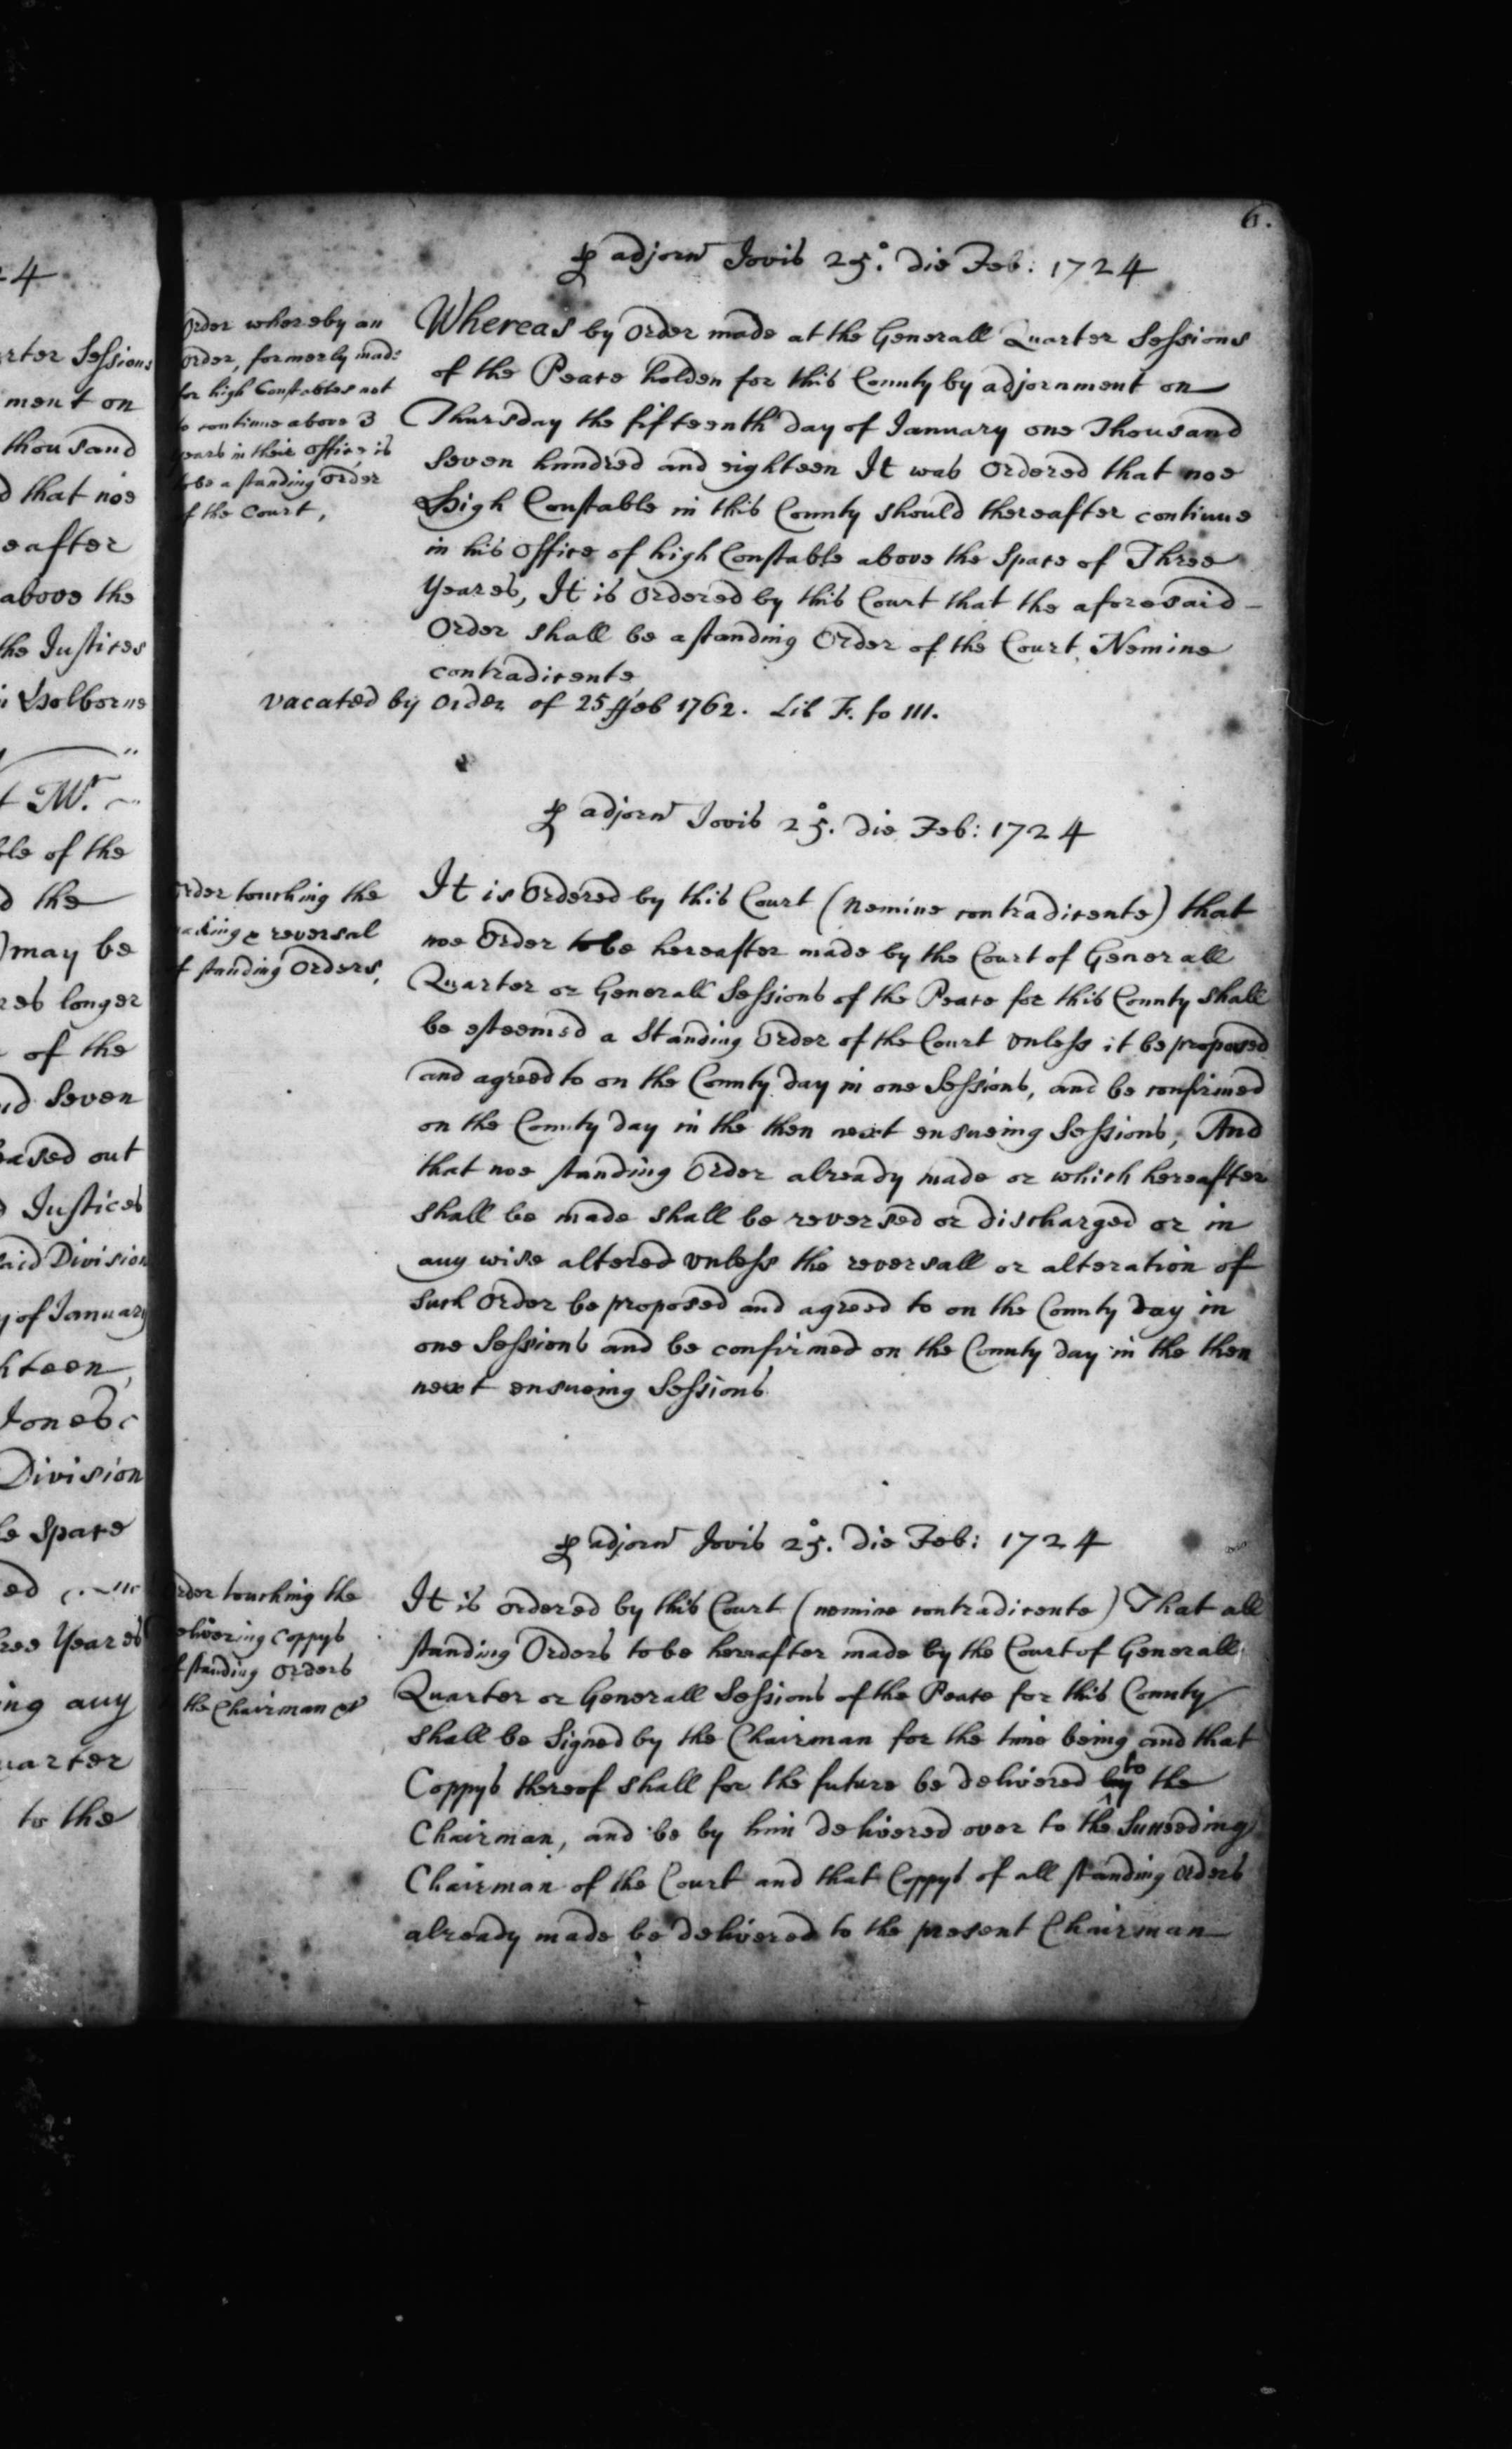 24
rter Sessions
ment on
thousand
d that noe
eafter
above the
the Justices
Holborne
t Mr.
ble of the
d the
) may be
res longer
of the
nd Seven
eased out
d Justices
said Division
y of January
hteen,
Jones
Division
le Space
ed
hree Yeares
ing any
uarter
to the
6.
p adjorn Jovis 25.o die Feb: 1724
Order whereby an
Order, formerly made
for high Constables not
to continue above 3
years in their Office, is
to be a standing Order
of the Court,
Whereas by Order made at the Generall Quarter Sessions
of the Peace holden for this County by adjornment on
Thursday the fifteenth day of January one Thousand
Seven hundred and eighteen It was Ordered that noe
High Constable in this County should thereafter continue
in his Office of high Constable above the Space of Three
Yeares, It is Ordered by this Court that the aforesaid -
Order shall be a standing Order of the Court Nemine
contradicente
vacated by Order of 25 ffeb 1762. Lib F. fo 111.
p adjorn Jovis 25.o die Feb: 1724
Order touching the
making & reversal
of standing Orders,
It is Ordered by this Court (nemine contradicente) that
noe Order to be hereafter made by the Court of Generall
Quarter or Generall Sessions of the Peace for this County shall
be esteemed a Standing Order of the Court vnless it be proposed
and agreed to on the County day in one Sessions, and be confirmed
on the County day in the then next ensueing Sessions, And
that noe standing Order already made or which hereafter
shall be made shall be reversed or discharged or in
any wise altered vnless the reversall or alteration of
such Order be proposed and agreed to on the County day in
one Sessions and be confirmed on the County day in the then
next ensueing Sessions
p adjorn Jovis 25.o die Feb: 1724
Order touching the
delivering Coppys
of standing Orders
the Chairman &c
It is ordered by this Court (nemine contradicente) That all
standing Orders to be hereafter made by the Court of Generall
Quarter or Generall Sessions of the Peace for this County
shall be Signed by the Chairman for the time being and that
Coppys thereof shall for the future be delivered by to the
Chairman, and be by him delivered over to the Succeeding
Chairman of the Court and that Coppys of all standing Orders
already made be delivered to the present Chairman